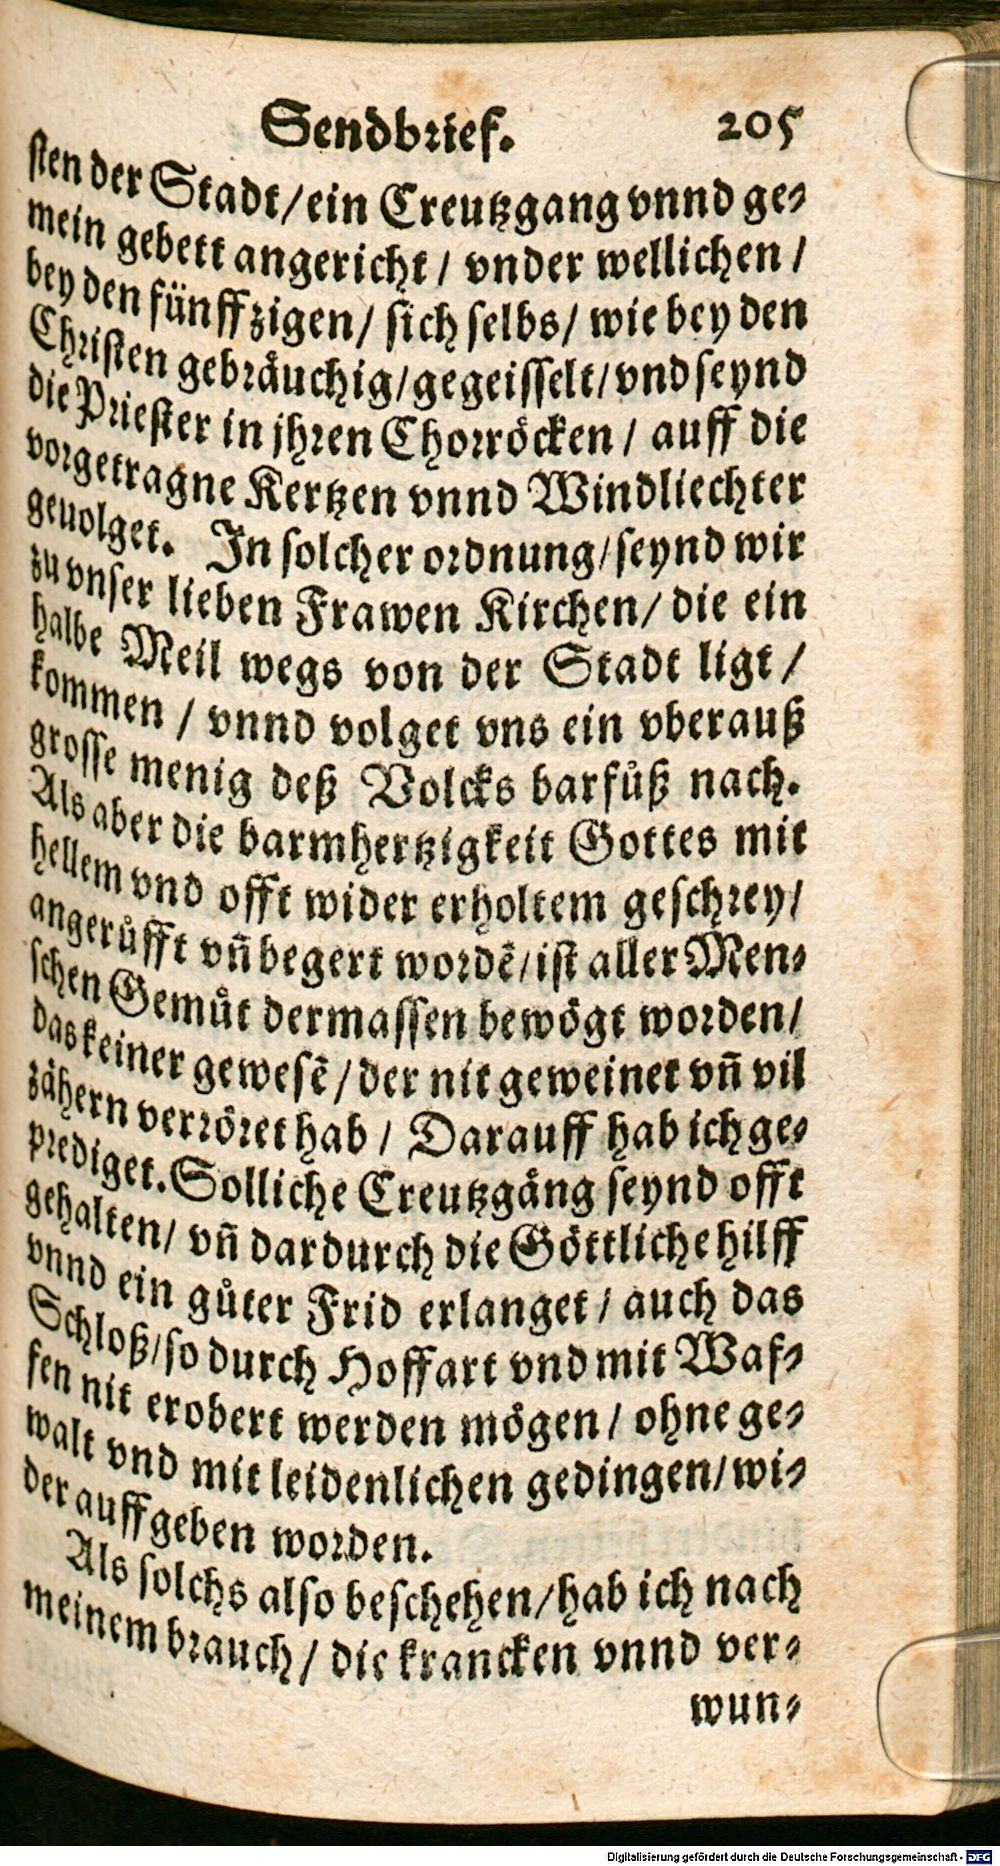 Sendbrief. 205
sten der Stadt/ein Creutzgang vnnd ge-
mein gebett angericht / vnder wellichen /
bey den fünffzigen/ sich selbs/ wie bey den
Christen gebräuchig/gegeisselt/vnd seynd
die Priester in jhren Chorröcken / auff die
vorgetragne Kertzen vnnd Windliechter
geuolget. In solcher ordnung/seynd wir
zu vnser lieben Frawen Kirchen/ die ein
halbe Meil wegs von der Stadt ligt /
kommen / vnnd volget vns ein vberauß
grosse menig deß Volcks barfuͤß nach.
Als aber die barmhertzigkeit Gottes mit
hellem vnd offt wider erholtem geschrey/
angeruͤfft vñ begert wordẽ/ist aller Men-
schen Gemuͤt dermassen bewoͤgt worden/
das keiner gewesẽ/der nit geweinet vñ vil
zaͤhern verroͤret hab / Darauff hab ich ge-
prediget. Solliche Creutzgaͤng seynd offt
gehalten/ vñ dardurch die Goͤttliche hilff
vnnd ein guͤter Frid erlanget / auch das
Schloß/so durch Hoffart vnd mit Waf-
fen nit erobert werden moͤgen / ohne ge-
walt vnd mit leidenlichen gedingen/wi-
der auffgeben worden.
Als solchs also beschehen/hab ich nach
meinem brauch / die krancken vnnd ver-
wun-
Digitalisierung gefördert durch die Deutsche Forschungsgemeinschaft - DFG